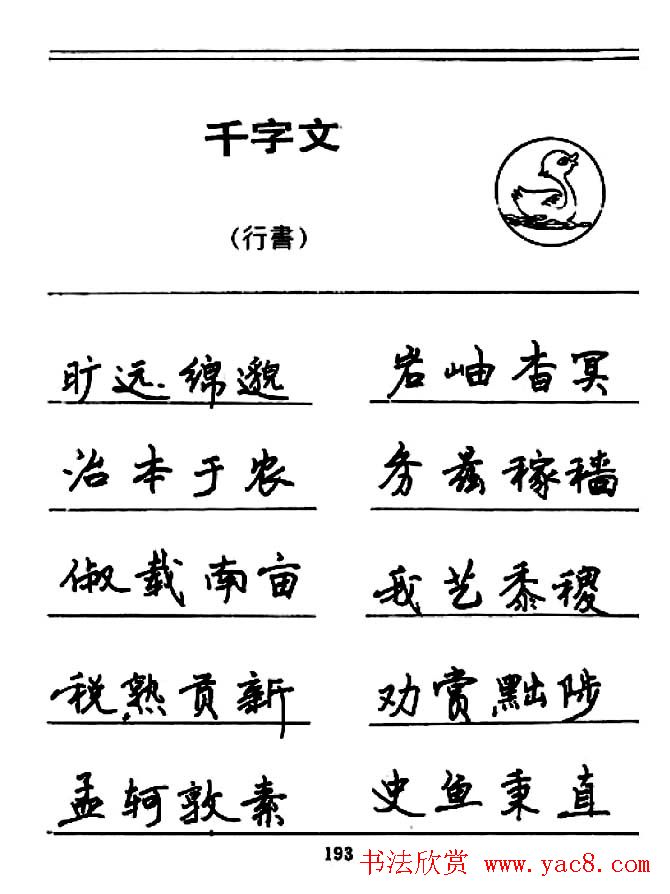 千字文
(行書)
旷远绵邈 岩岫杳冥
治本于农 务兹稼穑
俶载南亩 我艺黍稷
税熟贡新 劝赏黜陟
孟轲敦素 史鱼秉直
193
书法欣赏 www.yac8.com